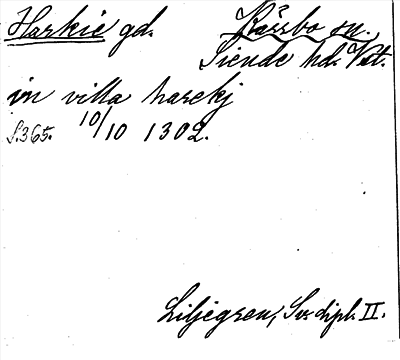 Harkie gd. Kärrbo sn.
Siende hd. Vst.
in villa harekj
S. 365. 10/10 1302.
Liljegren, Sv. dipl. II.